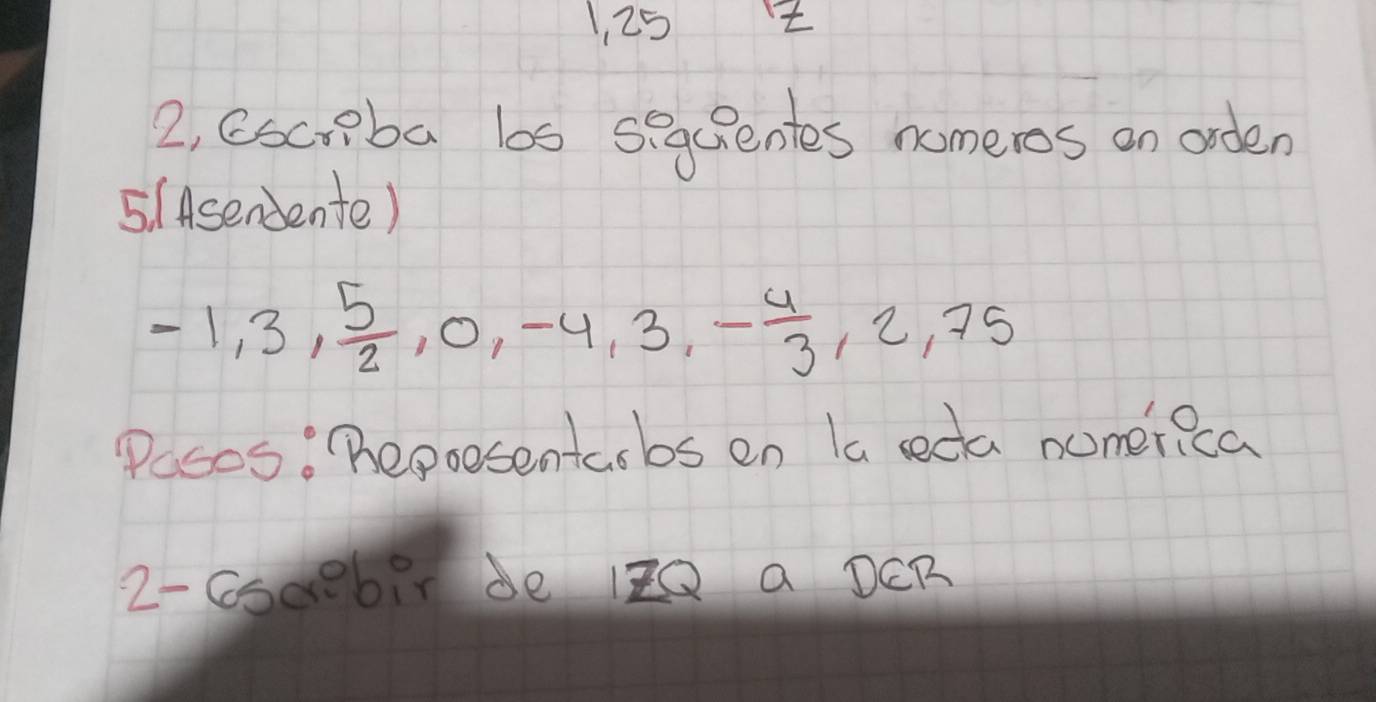 1,25 Z
2, Escriba los siguientes numeros en orden
5. (Asendente)
-1,3, 5/2, 0, -4, 3, -4/3, 2,75
Pasos: Representarlos en la recta numérica
2- Escribir de IZQ a DER